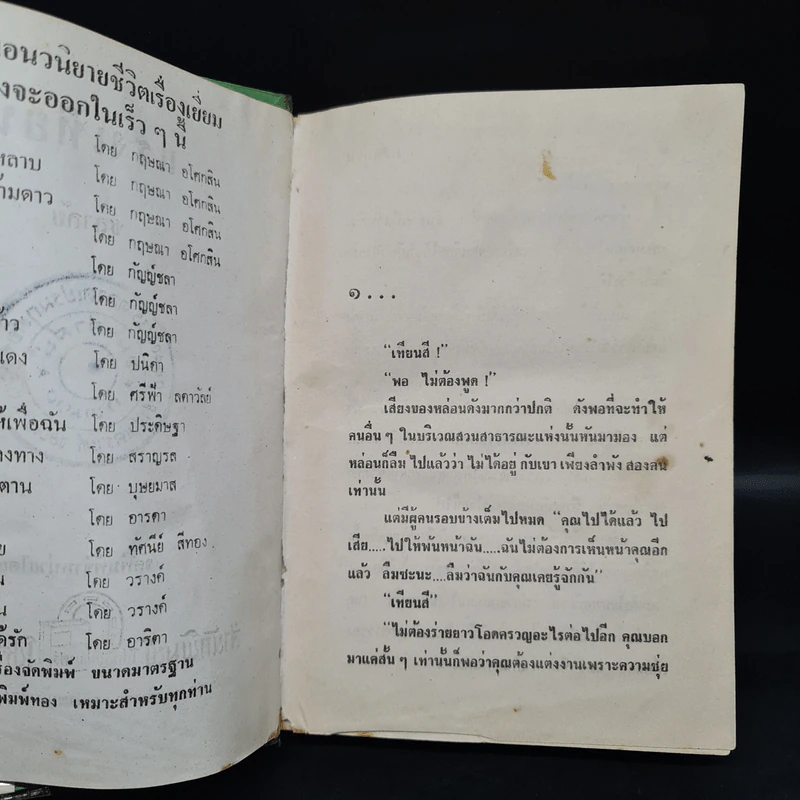 อนวนิยายชีวิตเรื่องเยี่ยม
จะออกในเร็ว ๆ นี้
หลาบ โดย กฤษณา อโศกสิน
ามดาว โดย กฤษณา อโศกสิน
โดย กฤษณา อโศกสิน
โดย กฤษณา อโศกสิน
โดย กัญญ์ชลา
โดย กัญญ์ชลา
าว โดย กัญญ์ชลา
แดง โดย ปนิดา
โดย ศรีฟ้า ลดาวัลย์
ห้เพื่อฉัน โดย ประดิษฐา
งทาง โดย สราญรส
ตาน โดย บุษยมาส
โดย อารดา
ย โดย ทัศนีย์ สีทอง
น โดย วรางค์
น โดย วรางค์
ด้รัก โดย อาริตา
รื่องจัดพิมพ์ ขนาดมาตรฐาน
พิมพ์ทอง เหมาะสำหรับทุกท่าน
๑...
“เทียนสี !”
“พอ ไม่ต้องพูด !”
เสียงของหล่อนดังมากกว่าปกติ ดังพอที่จะทำให้
คนอื่น ๆ ในบริเวณสวนสาธารณะแห่งนั้นหันมามอง แต่
หล่อนก็ลืมไปแล้วว่า ไม่ได้อยู่กับเขา เพียงลำพัง สองคน
เท่านั้น
แต่มีผู้คนรอบข้างเต็มไปหมด “คุณไปได้แล้ว ไป
เสีย.....ไปให้พ้นหน้าฉัน.....ฉันไม่ต้องการเห็นหน้าคุณอีก
แล้ว ลืมซะนะ....ลืมว่าฉันกับคุณเคยรู้จักกัน”
“เทียนสี”
“ไม่ต้องร่ายยาวโอดครวญอะไรต่อไปอีก คุณบอก
มาแค่สั้น ๆ เท่านั้นก็พอว่าคุณต้องแต่งงานเพราะความซุ่ย